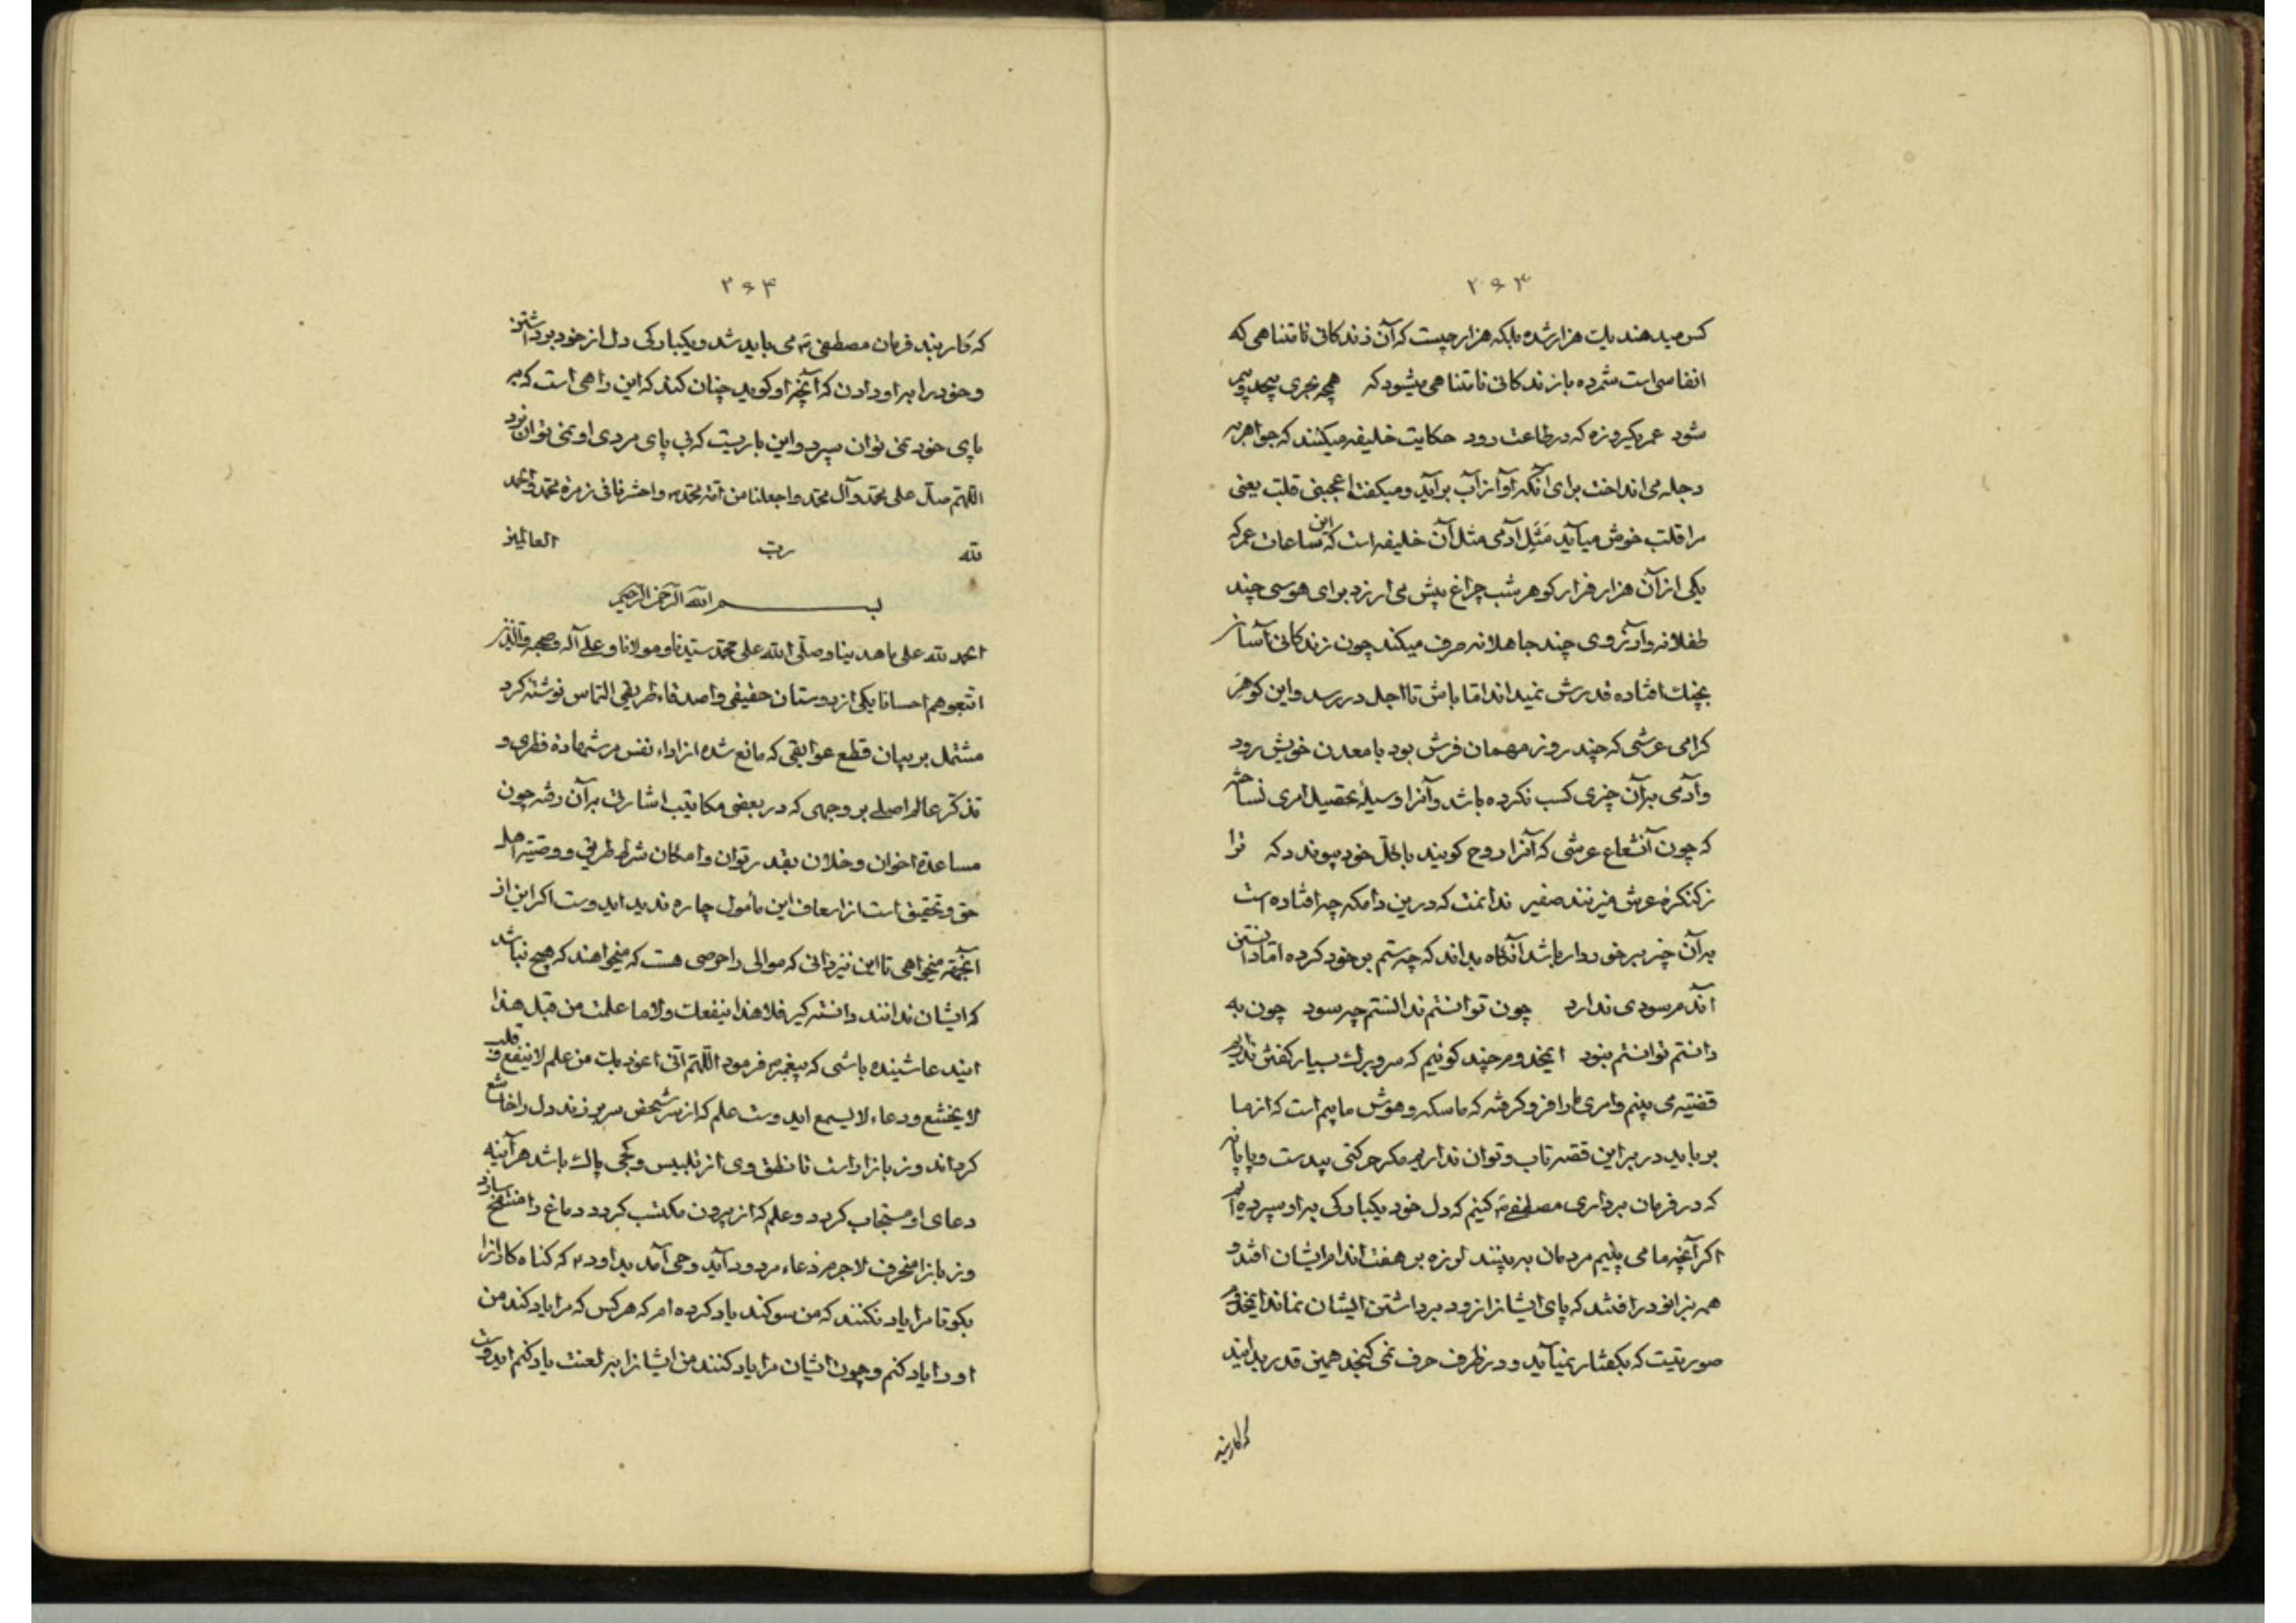 ۲۶۳
کس میدهند یک هزار شده بلکه هزار چیست که آن زندکانی نامتناهی که
انفاسی است شمرده با زندکانی نامتناهی میشود که همچو بحری بیحد و مر
شود عمر یکروزه که در طاعت رود حکایت خلیفه میکنند که جواهر به
دجله می انداخت برای آنکه آواز آب برآید و میکفت اعجبنی قلب یعنی
مرا قلب خوش میآید مَثَل آدمی مثل آن خلیفه است که این ساعات عمر که
یکی از آن هزار هزار کوهر شب چراغ بیش می ارزد برای هوسی چند
طفلانه و آرزوی چند جاهلانه صرف میکند چون زندکانی آسان
بچنک افتاده قدرش نمیداند اما باش تا اجل در رسد و این کوهر
کرامی عرشی که چند روز مهمان فرش بود با معدن خویش رود
و آدمی بر آن چیزی کسب نکرده باشد و آنرا وسیلهٔ تحصیل امری نساخته
که چون آن شعاع عرشی که آنرا روح کویند با محل خود پیوندد که ترا
ز کنکرهٔ عرش میزنند صفیر ندانمت که درین دامکه چه افتاده است
بر آن چیز برخوردار باشد آنکاه بداند که چه ستم بر خود کرده اما دانستن
آندم سودی ندارد چون توانستم ندانستم چه سود چون به
دانستم توانستم نبود ایمخدوم هر چند کوئیم که سر و برك بسیار کفتن نداریم
قضیه می بینم و امری ما را فرو کرفته که ماسکه و هوش مایم است که از ما
برباید در بر این قصه تاب و توان نداریم مکر حرکتی بیدست و پایانه
که در فرمان برداری مصطفی ص کنیم که دل خود یکبارکی بر او سپرده ایم
اکر آنچه ما می بینیم مردمان به بینند لرزه بر هفت اندام ایشان افتد و
همه بزانو در افتند که پای ایشانرا زور برداشتن ایشان نماند ایمخدوم
صورتیست که بکفتار نمیآید و در ظرف حرف نمی کنجد همین قدر بدانید
که کار بند
۲۶۴
که کار بند فرمان مصطفی ص می باید شد و یکبارکی دل از خود برداشتن
و خود را بر او دادن که آنچه او کوید چنان کند که این راهی است که به
پای خود نمی توان سپرد و این باریست که بی پای مردی او نمی توان برد
اللهم صل علی محمد و آل محمد و اجعلنا من امة محمد ص و احشرنا فی زمرة محمد و الحمد
لله رب العالمین
بسم الله الرحمن الرحیم
الحمد لله علی ما هدینا و صلی الله علی محمد سیدنا و مولانا و علی آله و صحبه و الذین
اتبعوهم احسانا یکی از دوستان حقیقی و اصدقاء طریقی التماس نوشته کرد
مشتمل بر بیان قطع عوایقی که مانع شده از اداء نفس مر شهادة فطری و
تذکر عالم اصلی بر وجهی که در بعضی مکاتیب اشارتی بر آن رفته چون
مساعدة اخوان و خلان بقدر توان و امکان شرط طریق و وصیة اهل
حق و تحقیق است از اسعاف این مأمول چاره ندید ایدوست اکر این از
آنجهة میخواهی تا این نیز دانی که موالی را حرصی هست که میخواهند که هیچ نباشد
که ایشان ندانند دانسته کیر فلا هذا ینفعك و لا ما علمت من قبل هذا
ایندعا شینده باشی که پیغمبر ص فرمود اللهم انی اعوذ بك من علم لا ینفع و قلب
لا یخشع و دعاء لا یسمع ایدوست علم که از سر شخص سر بر زند دل را خاشع
کرداند و زبانرا راست تا نطق وی از تلبیس و کجی پاك باشد هر آینه
دعای او مستجاب کردد و علم که از برون مکتسب کردد دماغ را منتفخ سازد
و زبانرا منحرف لاجرم دعاء مردود آید وحی آمد بداود ع که کناه کارانرا
بکو تا مرا یاد نکنند که من سوکند یاد کرده ام که هر کس که مرا یاد کند من
او را یاد کنم و چون ایشان مرا یاد کنند من ایشانرا به لعنت یاد کنم ایدوست